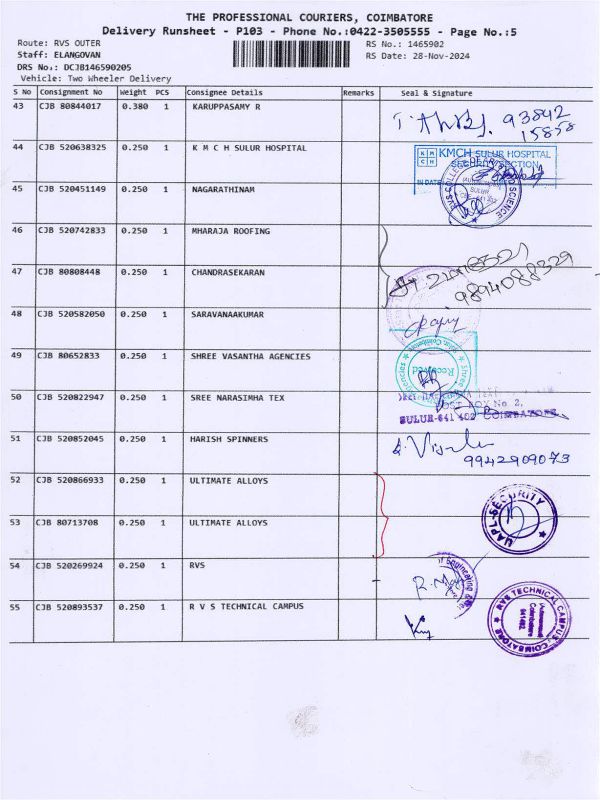 THE PROFESSIONAL COURIERS, COIMBATORE
Delivery Runsheet - P103 - Phone No.:0422-3505555 - Page No.:5
Route: RVS OUTER
RS No.: 1465902
Staff: ELANGOVAN
RS Date: 28-Nov-2024
DRS No.: DCJB146590205
Vehicle: Two Wheeler Delivery
S No Consignment No Weight PCS Consignee Details Remarks Seal & Signature
43 CJB 80844017 0.380 1 KARUPPASAMY R
93842
15858
44 CJB 520638325 0.250 1 K M C H SULUR HOSPITAL
KMCH SULUR HOSPITAL
SECURITY SECTION
IN DATE
45 CJB 520451149 0.250 1 NAGARATHINAM
46 CJB 520742833 0.250 1 MHARAJA ROOFING
47 CJB 80808448 0.250 1 CHANDRASEKARAN
9894088329
48 CJB 520582050 0.250 1 SARAVANAAKUMAR
49 CJB 80652833 0.250 1 SHREE VASANTHA AGENCIES
Received
50 CJB 520822947 0.250 1 SREE NARASIMHA TEX
POST BOX No 2,
SULUR-641 402 COIMBATORE
51 CJB 520852045 0.250 1 HARISH SPINNERS
9942909073
52 CJB 520866933 0.250 1 ULTIMATE ALLOYS
UAPL-SECURITY
53 CJB 80713708 0.250 1 ULTIMATE ALLOYS
54 CJB 520269924 0.250 1 RVS
55 CJB 520893537 0.250 1 R V S TECHNICAL CAMPUS
RVS TECHNICAL CAMPUS
COIMBATORE